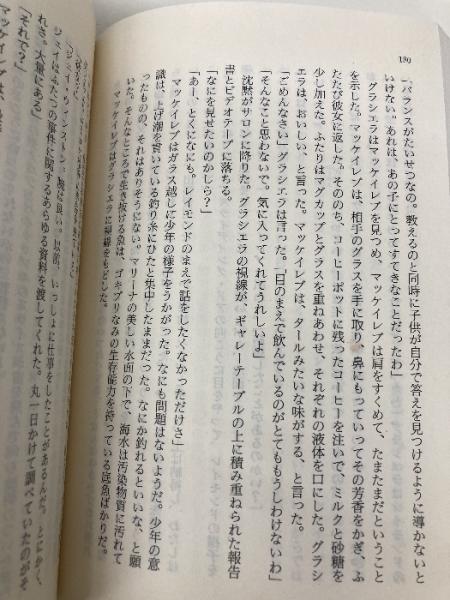 190
「バランスがたいせつなの。教えるのと同時に子供が自分で答えを見つけるように導かないと
いけない。あれは、あの子にとってすてきなことだったわ」
グラシエラはマッケイレブを見つめ、マッケイレブは肩をすくめて、たまたまだということ
を示した。マッケイレブは、相手のグラスを手に取り、鼻にもっていってその芳香をかぎ、ふ
たたび彼女に返した。そののち、コーヒーポットに残ったコーヒーを注いで、ミルクと砂糖を
少し加えた。ふたりはマグカップとグラスを重ねあわせ、それぞれの液体を口にした。グラシ
エラは、おいしい、と言った。マッケイレブは、タールみたいな味がする、と言った。
「ごめんなさい」グラシエラは言った。「目のまえで飲んでいるのがとてももうしわけないわ」
「そんなこと思わないで。気に入ってくれてうれしいよ」
沈黙がサロンに降りた。グラシエラの視線が、ギャレーテーブルの上に積み重ねられた報告
書とビデオテープに落ちる。
「なにを見せたいのかしら？」
「あー、とくになにも。レイモンドのまえで話をしたくなかっただけさ」
マッケイレブはガラス越しに少年の様子をうかがった。なにも問題はないようだ。少年の意
識は、上げ潮を貫いている釣り糸にひたと集中したままだった。なにか釣れるといいな、と願
ったものの、それはありそうにない。マリーナの美しい水面の下で、海水は汚染物質に汚れて
いた。そんなところで生き抜ける魚は、ゴキブリなみの生存能力を持っている底魚ばかりだ。
マッケイレブはグラシエラに視線をもどした。
「ジェイ・ウィンストン
腕は良い。以前、いっしょに仕事をしたことがあるんだ。とにかく、
ジェイはふたつの事件に関するあらゆる資料を渡してくれた。丸一日かけて調べていたのがそ
れさ。大量にある」
「それで？」
マッケイレブは、